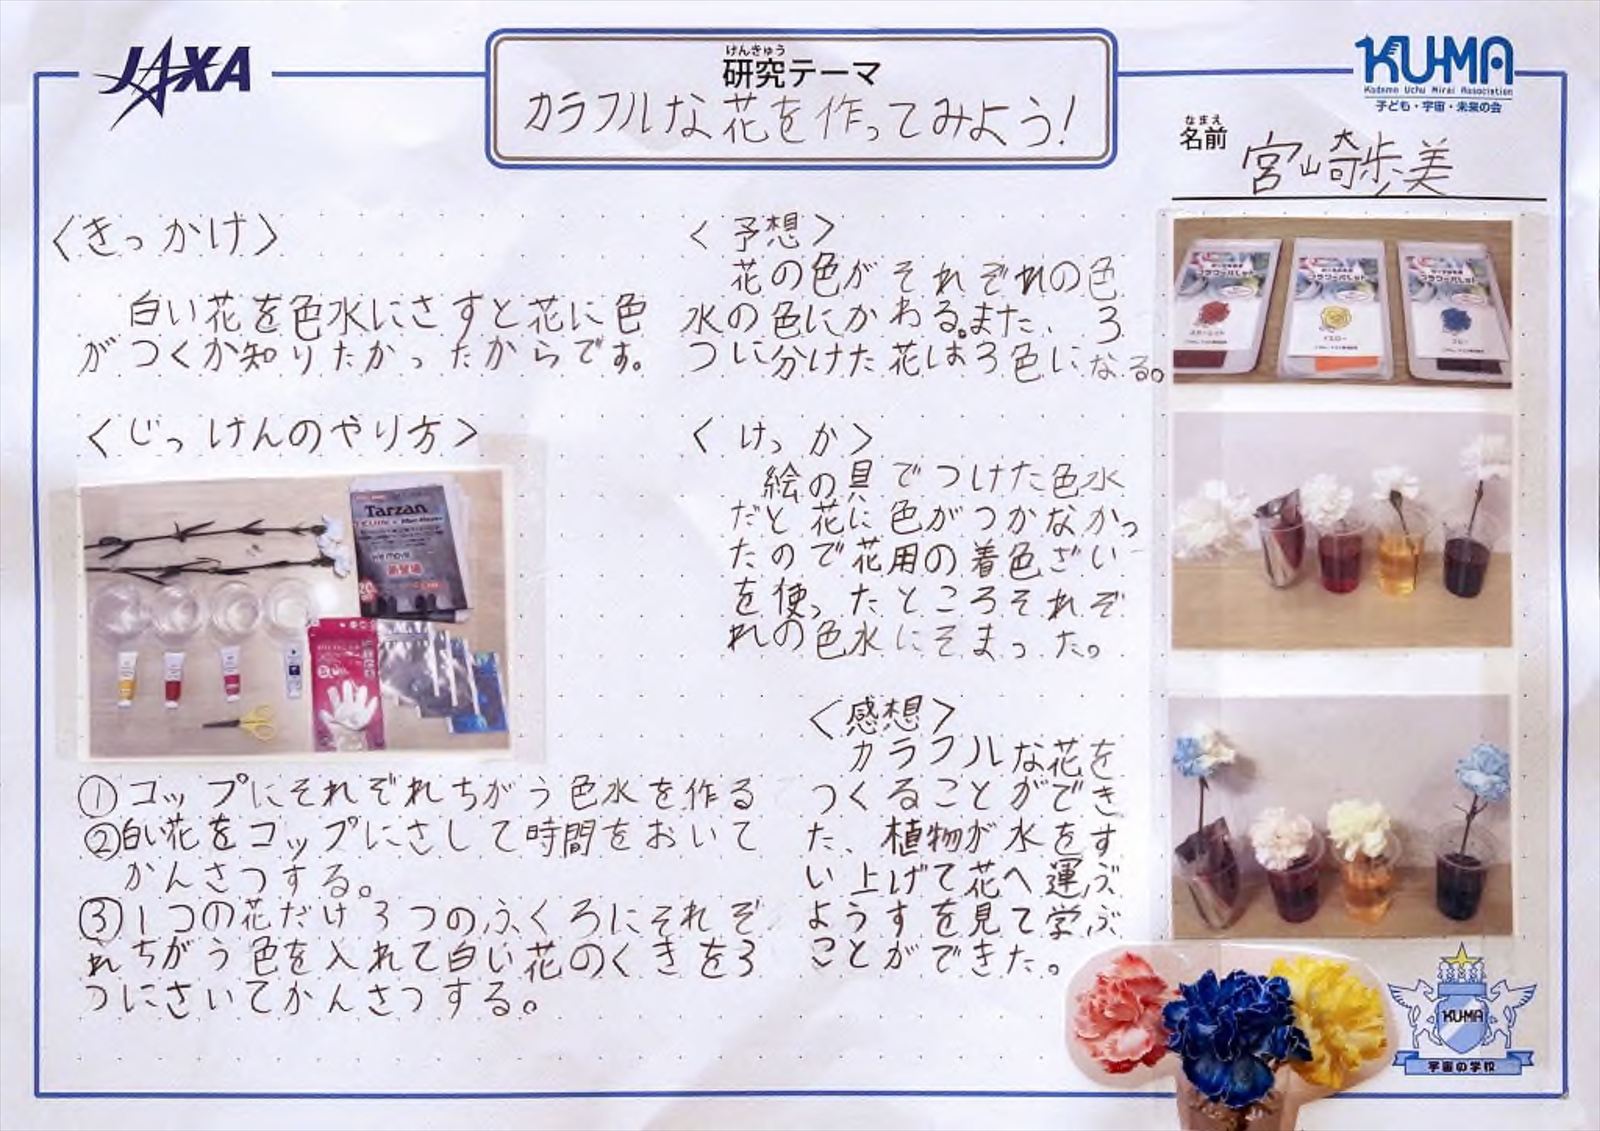 JAXA
けんきゅう
研究テーマ
カラフルな花を作ってみよう!
KU-MA
Kodomo Uchu Mirai Association
子ども・宇宙・未来の会
なまえ
名前
宮崎歩美
〈きっかけ〉
白い花を色水にさすと花に色
がつくか知りたかったからです。
〈じっけんのやり方〉
Tarzan
①コップにそれぞれちがう色水を作る
②白い花をコップにさして時間をおいて
かんさつする。
③1つの花だけ3つのふくろにそれぞ
れちがう色を入れて白い花のくきを3
つにさいてかんさつする。
〈予想〉
花の色がそれぞれの色
水の色にかわる。また、3
つに分けた花は3色になる。
〈けっか〉
絵の具でつけた色水
だと花に色がつかなかっ
たので花用の着色ざい
を使ったところそれぞ
れの色水にそまった。
〈感想〉
カラフルな花を
つくることができ
た、植物が水をす
い上げて花へ運ぶ
ようすを見て学ぶ
ことができた。
イエロー
KU-MA
宇宙の学校